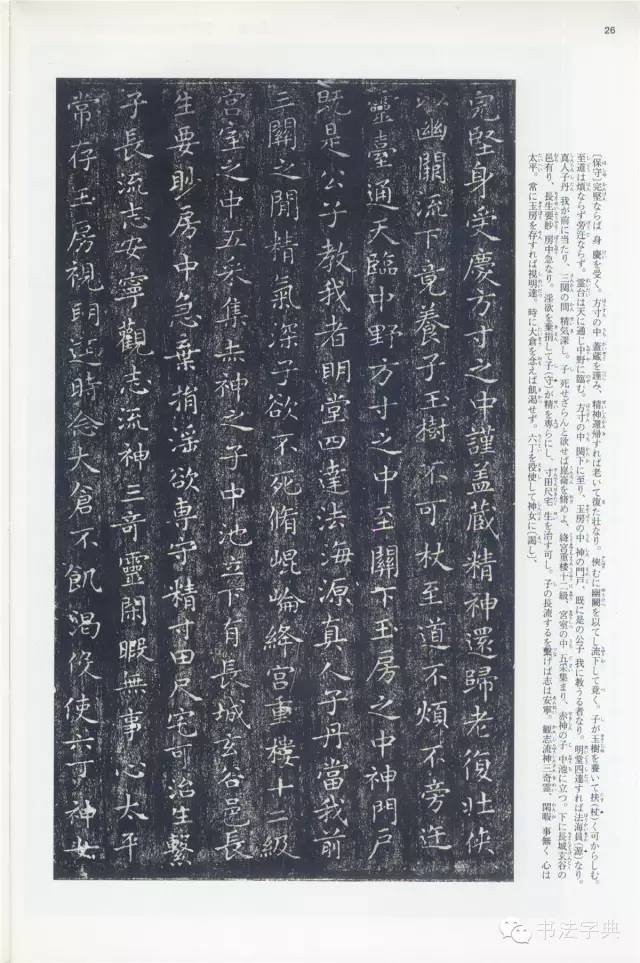 26
〔保守〕完堅ならば 身 慶を受く。方寸の中 蓋蔵を謹み、精神還帰すれば老いて復た壮なり。侠むに幽闕を以てし流下して竟く。子が玉樹を養いて扶(杖)く可からしむ。
至道は煩ならず旁迕ならず。霊台は天に通じ中野に臨む。方寸の中 関下に至り、玉房の中 神の門戸、既に是の公子 我に教うる者なり。明堂四達すれば法海員(源)なり。
真人子丹 我が前に当たり、三関の間 精気深し。子 死せざらんと欲せば崑崙を脩めよ、絳宮重楼十二級、宮室の中 五采集まり、赤神の子 中池に立つ。下に長城玄谷の
邑有り、長生要眇 房中急なり。淫欲を棄捐して子(守)が精を専らにし、寸田尺宅 生を治す可し。子の長流するを繫げば志は安寧。観志流神三奇霊、閑暇 事無く 心は
太平。常に玉房を存すれば視明達。時に大倉を念えば飢渇せず。六丁を役使して神女に(謁し)、
完堅身受慶方寸之中謹盖藏精神還歸老復壮侠
以幽闕流下竟養子玉樹不可杖至道不煩不旁迕
靈臺通天臨中野方寸之中至關下玉房之中神門戸
既是公子教我者明堂四達法海源真人子丹當我前
三關之間精氣深子欲不死脩崐崘絳宫重樓十二級
宫室之中五采集赤神之子中池立下有長城玄谷邑長
生要眇房中急棄捐淫欲専守精寸田尺宅可治生繫
子長流志安寧觀志流神三奇靈閑暇無事心太平
常存玉房視明達時念大倉不飢渴伇使六丁神女
书法字典